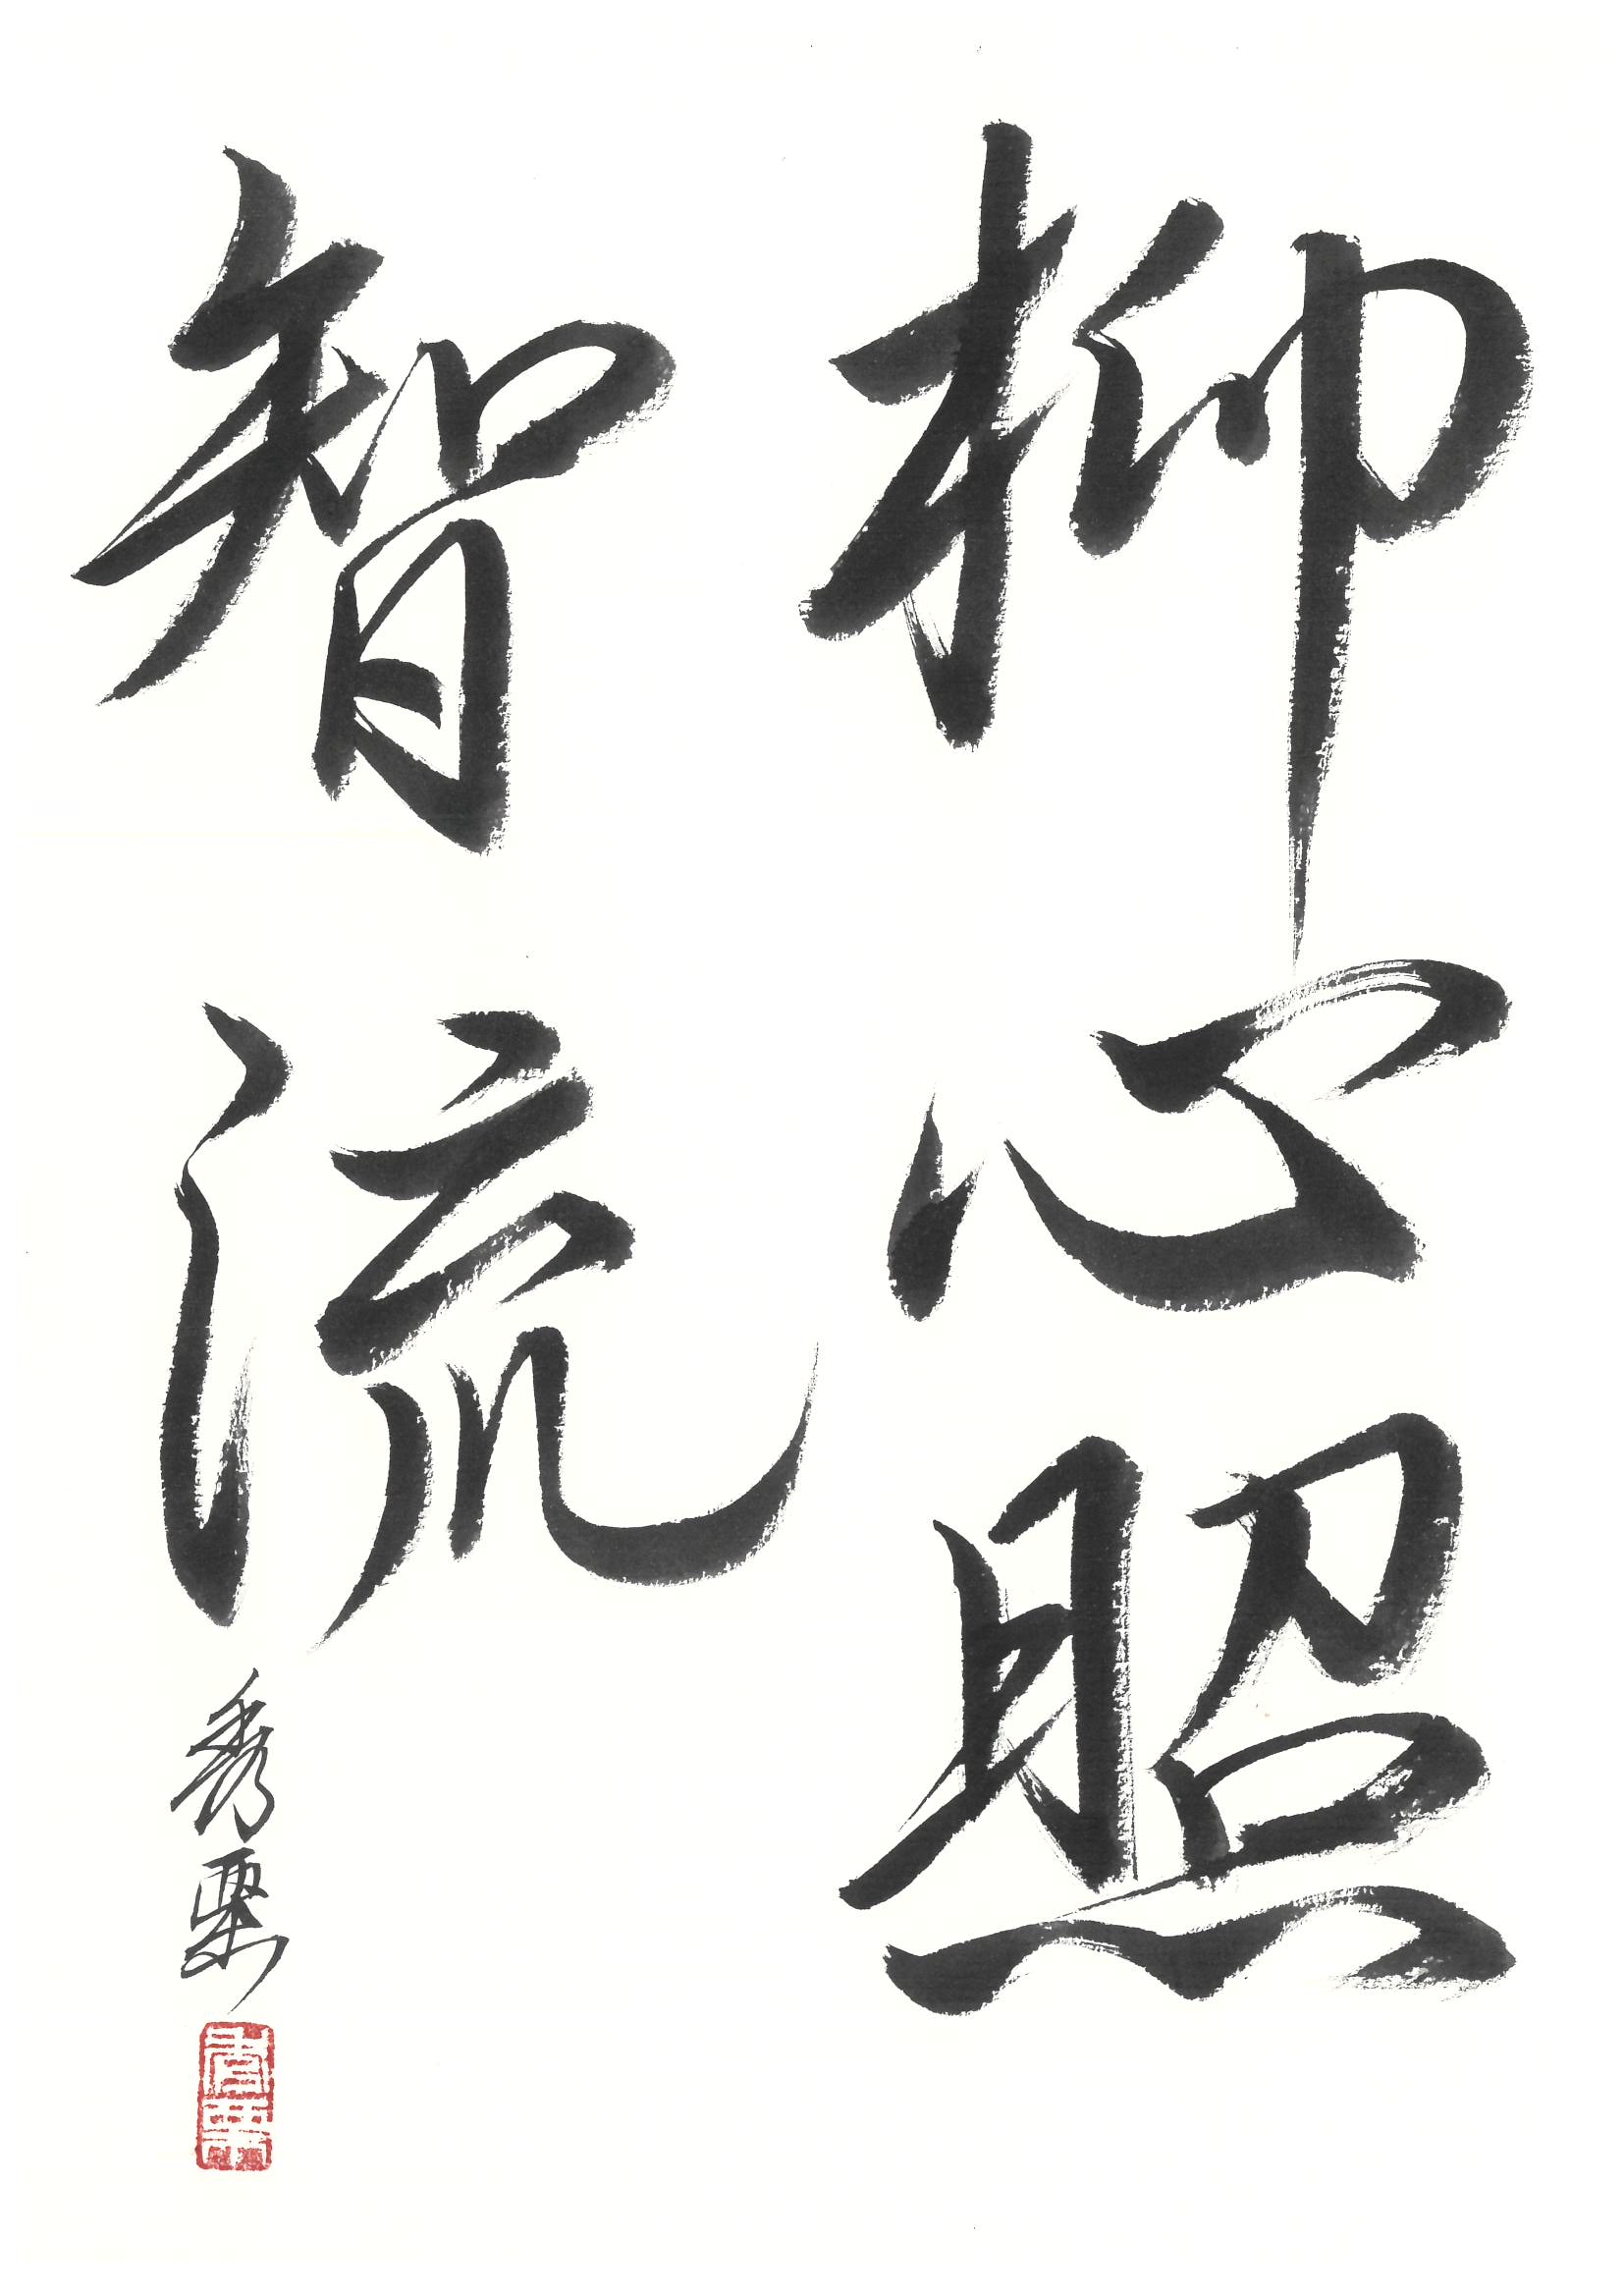 柳心照
智流
秀粟